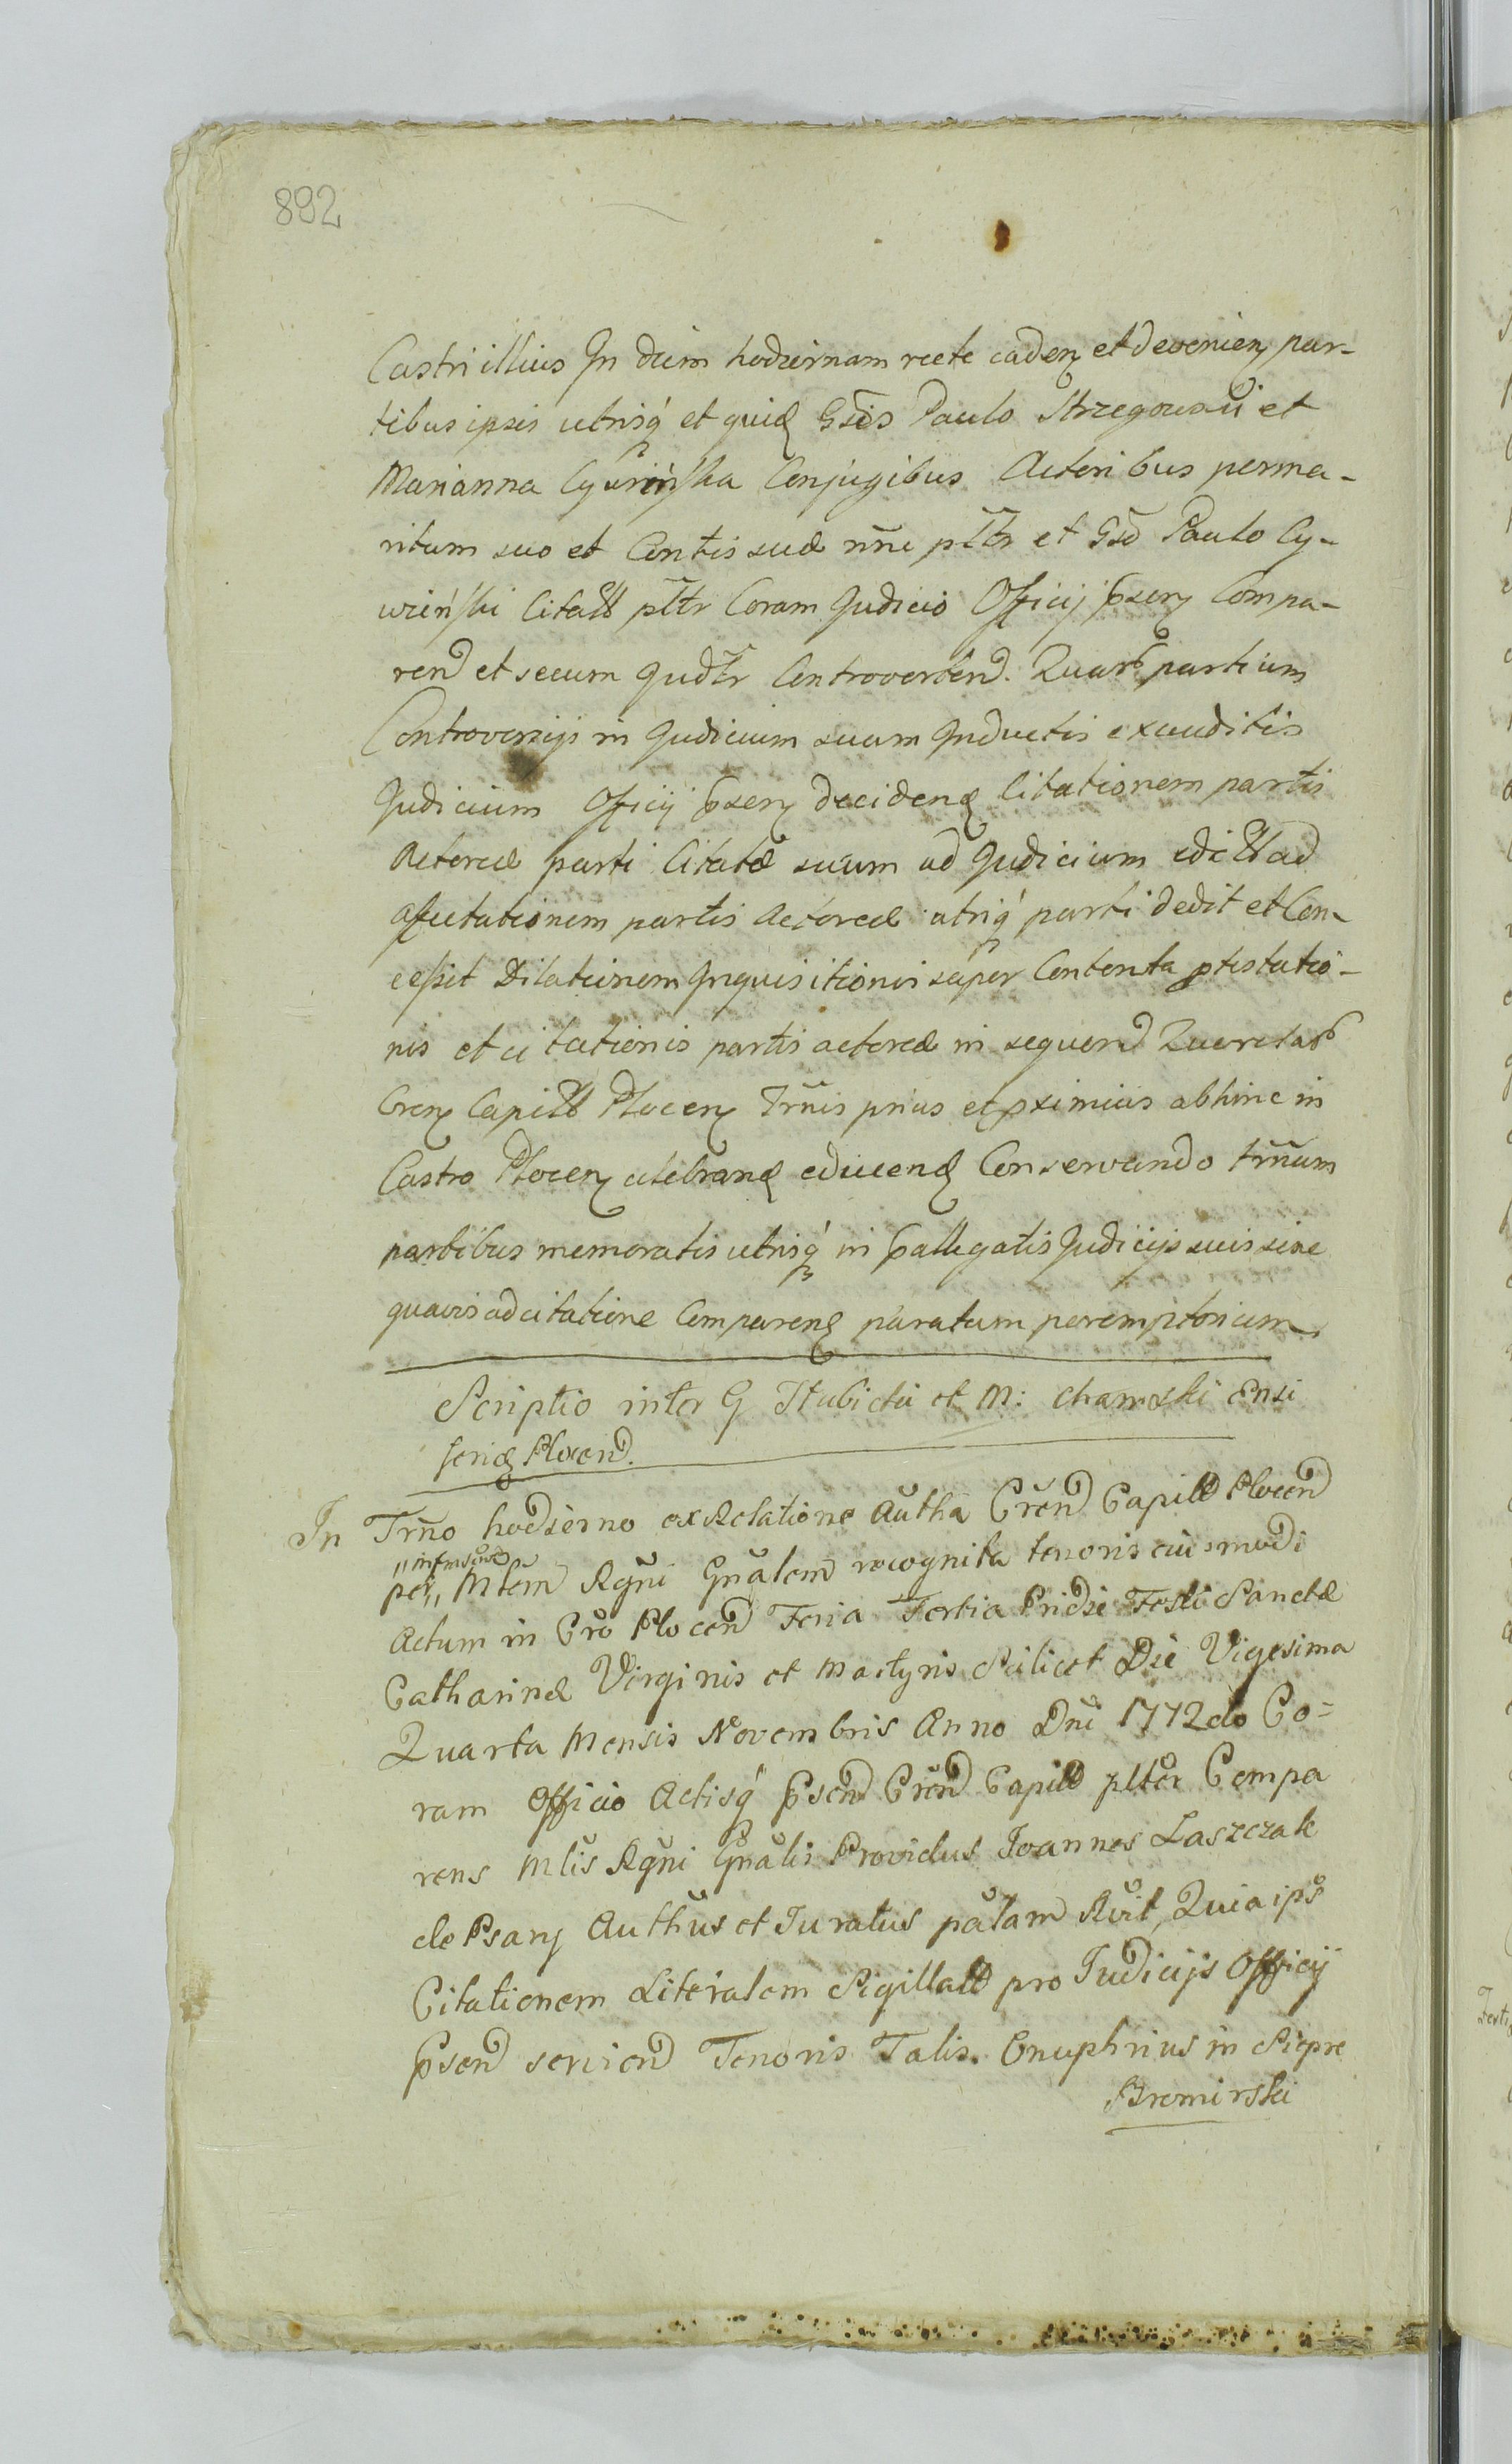 892
Castri illius In diem hodiernam recte caden et devenien par-
tibus ipsis utrisq́ et quid Gsis Paulo Strzegowski et
Marianna Cywińska Conjugibus Actoribus per ma-
ritum suo et Contis suæ nne plltr et Gso Paulo Cy-
wiński Citatt plltr Coram Judicio Officij psen Compa-
rend et secum Judltr Controverten. Quarb partium
Controversijs in Judicium suum Inductis exauditis
Judicium Officij psen decidend Citationem partis
Actoreæ parti Citatæ suum ad Judicium edi
affectationem partis Actoreæ utriq́ parti dedit et Con-
cessit Dilationem Inquisitionis super Contenta ptestatio-
nis et citationis partis actoreæ in sequend Querelab
Cren Capitt Plocen Trnis prius et pximius abhinc in
Castro Plocen celebrand educend Conservando trnum
partibus memoratis utrisq́ in pallegatis Judicijs suis sine
quavis adcitatione Comparend paratum peremptorium.
Scriptio inter G Itubicki et M: Chamski Ensi
ferid Plocend.
In Trno hodierno ex Relatione Autha Cren Capitt Plocen
infrascrip
per Mlem Rgni Gnalem recognita tenoris eiusmodi
Actum in Cro Plocen Feria Tertia Pridie Festi Sanctæ
Catharinæ Virginis et Martyris Scilicet Die Vigesima
Quarta Mensis Novembris Anno Dni 1772do Co=
ram Officio Actisq́ Psen Cren Capitt plter Compa
rens Mlis Rgni Gnalis Providus Joannes Laszczak
de Psary Authus et Juratus palam Rvit, Quia ips
Citationem Literalem Sigillatt pro Judicijs Officij
Psen servien Tenoris Talis. Onuphrius in Siepre
Bromirski